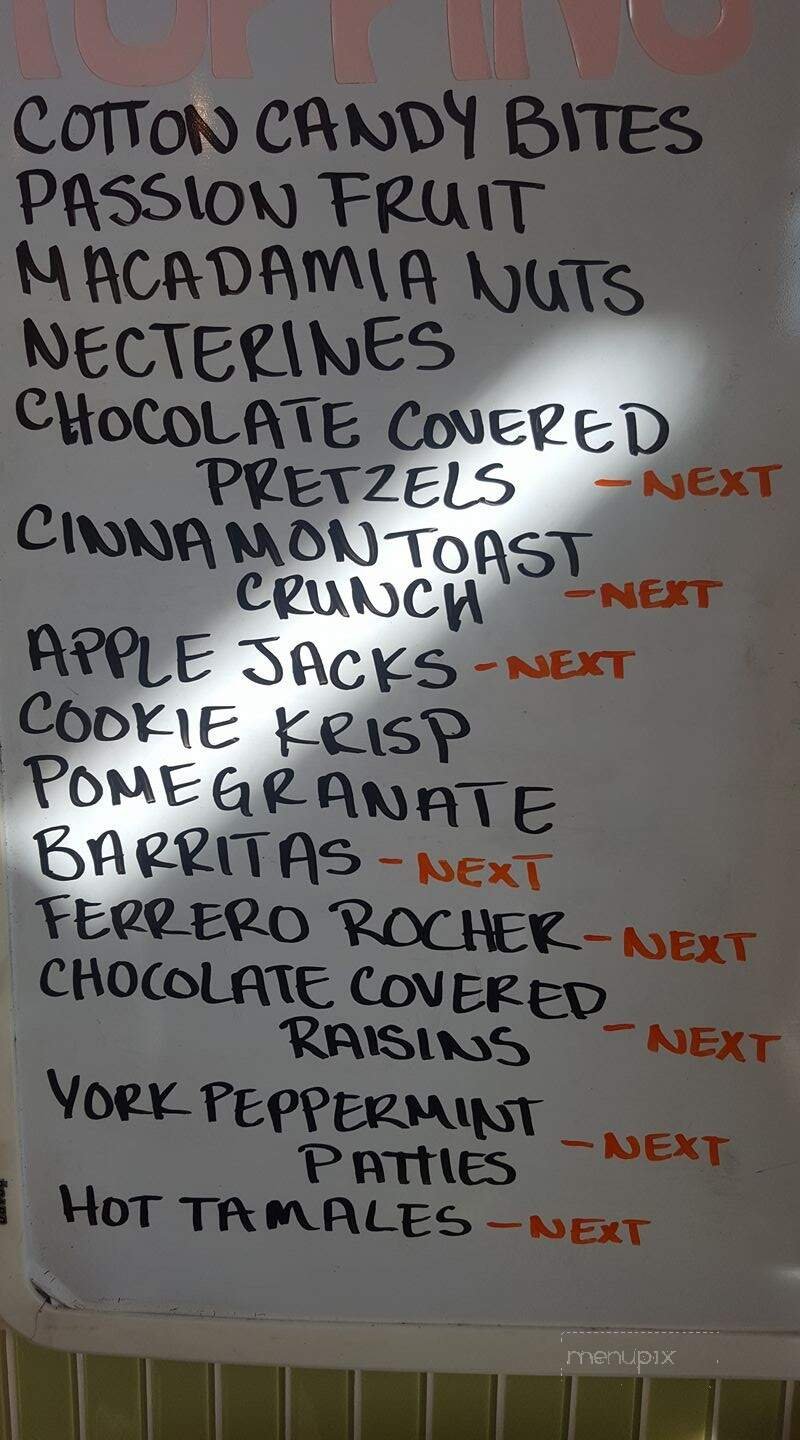 TOPPING
COTTON CANDY BITES
PASSION FRUIT
MACADAMIA NUTS
NECTERINES
CHOCOLATE COVERED
PRETZELS - NEXT
CINNAMON TOAST
CRUNCH - NEXT
APPLE JACKS - NEXT
COOKIE KRISP
POMEGRANATE
BARRITAS - NEXT
FERRERO ROCHER - NEXT
CHOCOLATE COVERED
RAISINS - NEXT
YORK PEPPERMINT
PATTIES - NEXT
HOT TAMALES - NEXT
menupix